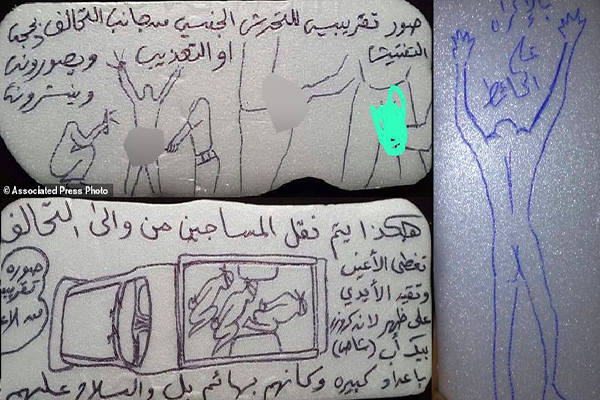 صور تقريبيه للتحرش الجنسي من جانب التحالف بحجة
التفتيش او التعذيب ويصورونه
وينشرونه
© Associated Press Photo
هكذا يتم نقل المساجين من والى التحالف
تغطى الأعين
وتقيد الأيدي
على ظهر
بيك أب
صوره
تقريبيه
باعداد كبيره وكأنهم بهائم بل والسلاح عليهم
على
الحائط